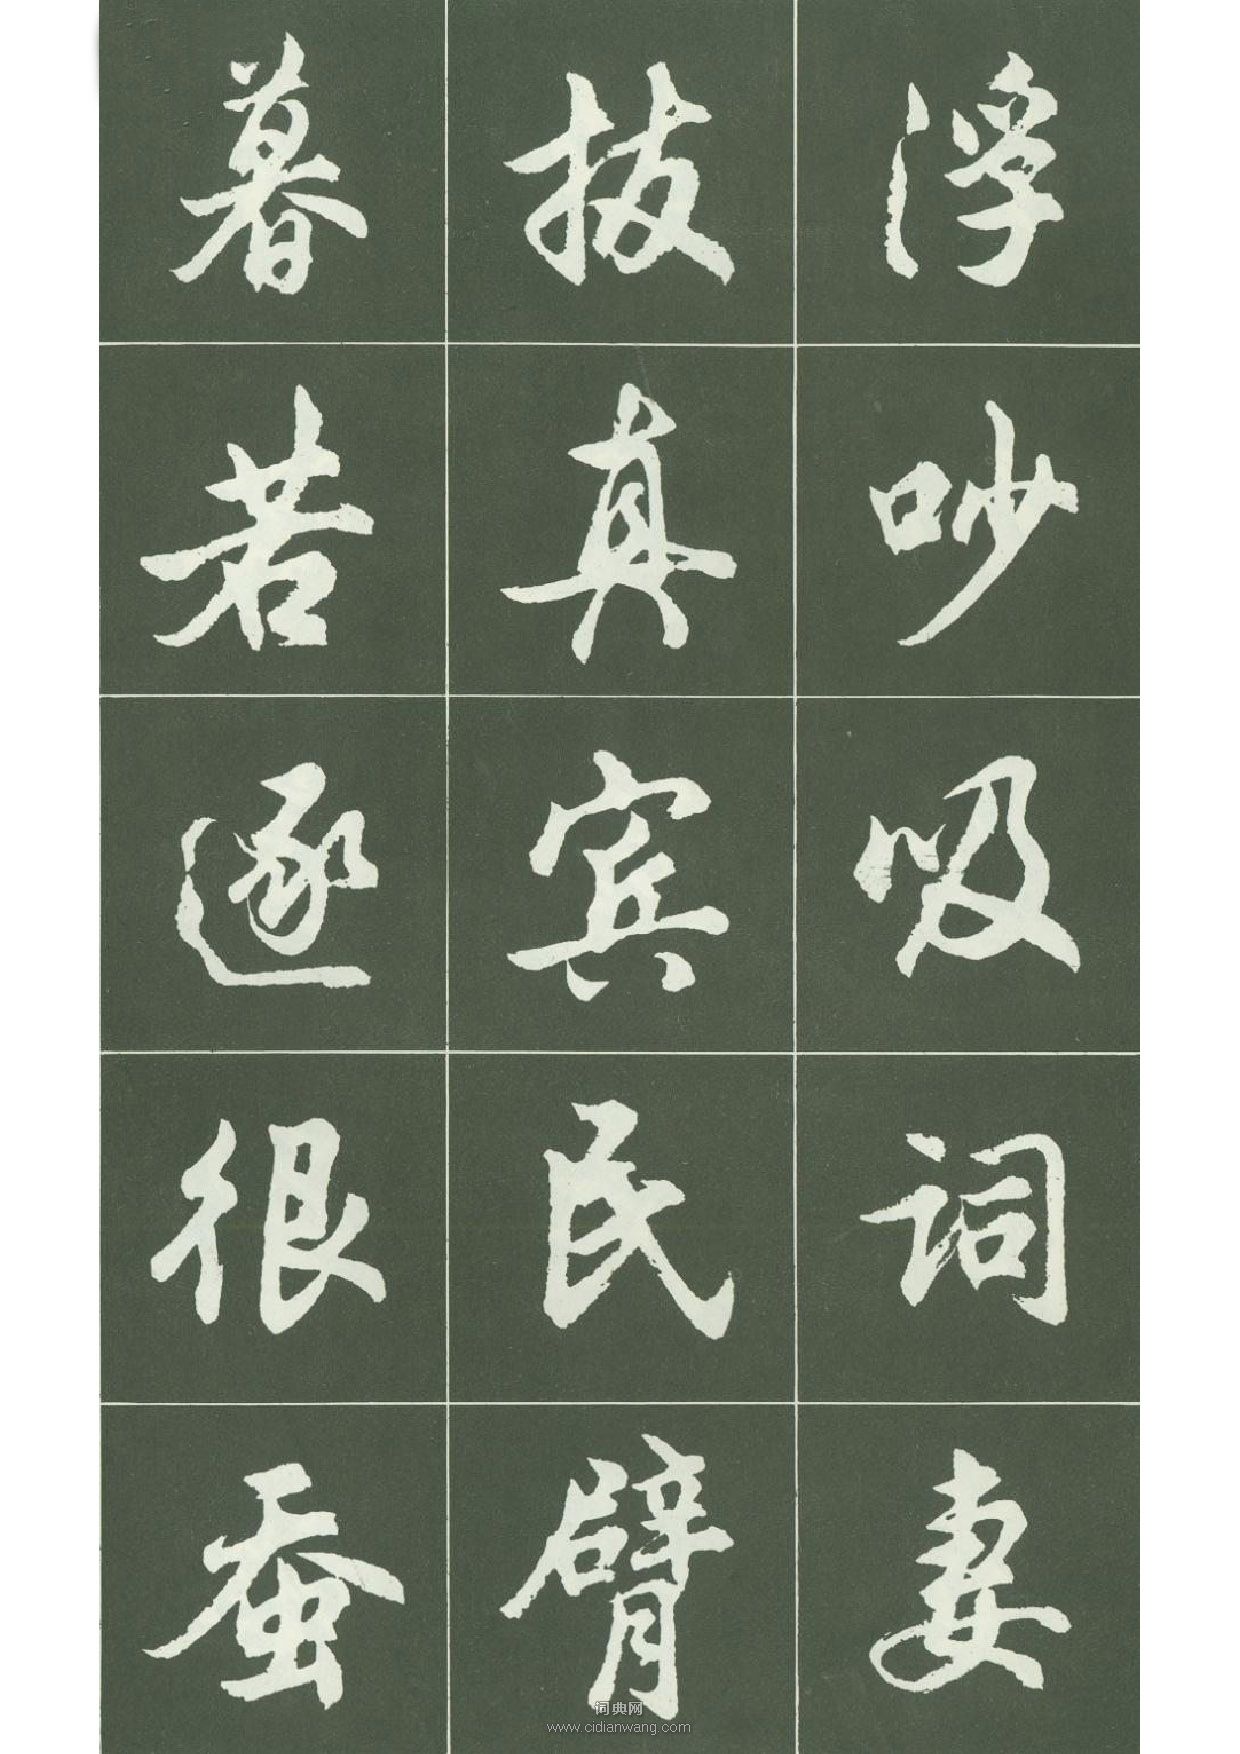 浮吵吸词妻
拔真宾民臂
暮若逐很蚕
词典网
www.cidianwang.com